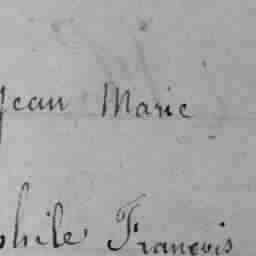 Jean Marie
phile François